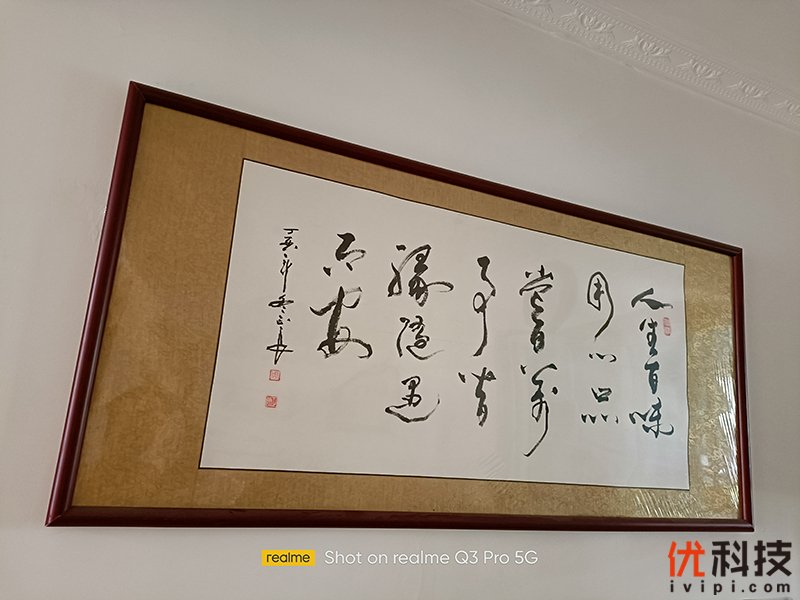 人生百味
用心品
尝百万
事皆
缘随遇
而安
丁亥年冬
realme
Shot on realme Q3 Pro 5G
优科技
ivipi.com